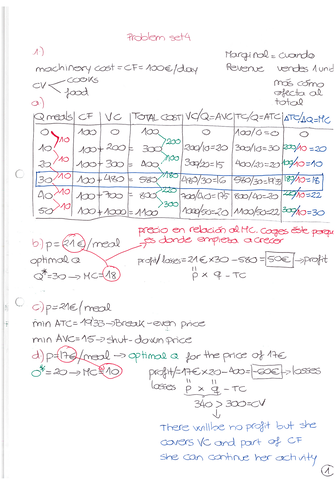 Problem set4
1)
Marginal = cuando
Revenue vendes 1 und
más cómo
afecta al
total
machinery cost = CF = 100€/day
CV cooks
food
a)
Q meals CF VC TOTAL COST VC/Q=AVC TC/Q=ATC ΔTC/ΔQ=MC
0 100 0 100 0 100/0=0 0
10 100+200 = 300 200/10=20 300/10=30 200/10=20
20 100+300 = 400 300/20=15 400/20=20 100/10=10
30 100+480 = 580 480/30=16 580/30=19'33 180/10=18
40 100+700 = 800 700/40=17'5 800/40=20 220/10=22
50 100+1000=1100 1000/50=20 1100/50=22 300/10=30
10 10 10 10 10
200 100 180 220 300
precio en relación al MC. coges éste porque
es donde empieza a crecer
b) p=21€/meal
optimal Q
Q*=30→MC=18
profit/losses=21€×30-580=50€→profit
p × q - TC
c) p=21€/meal
min ATC=19'33→Break-even price
min AVC=15→shut-down price
d) p=17€/meal→optimal Q for the price of 17€
Q*=20→MC=10
profit/=17€×20-400=-60€→losses
losses p × q - TC
340>300=CV
There will be no profit but she
covers VC and part of CF
she can continue her activity
1